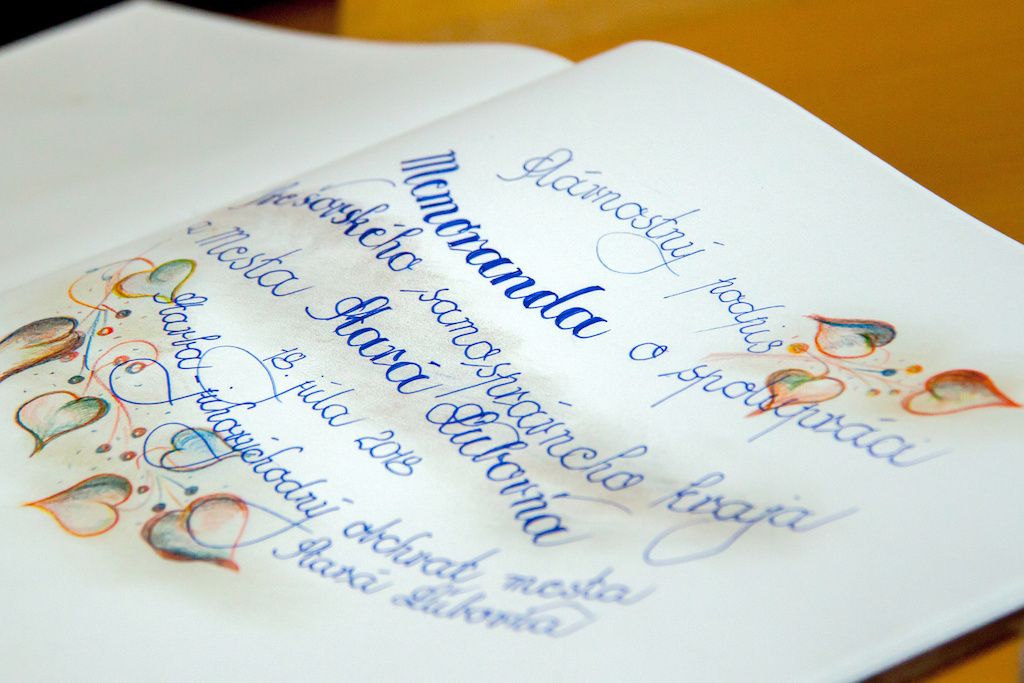 Slávnostný podpis
Memoranda o spolupráci
Prešovského samosprávneho kraja
a Mesta Stará Ľubovňa
18. júla 2018
Stavba juhovýchodný obchvat mesta
Stará Ľubovňa